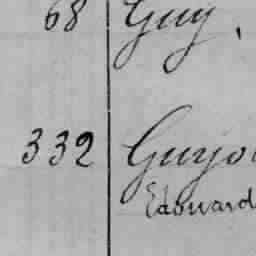 68 Guy,
332 Guyo
Edouard